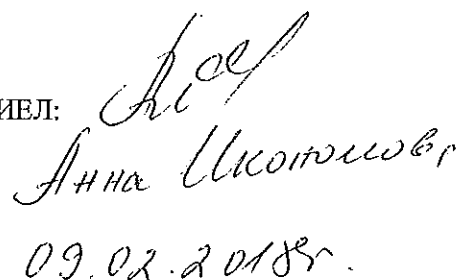 ИЕЛ:
Анна Икономова
09.02.2018г.